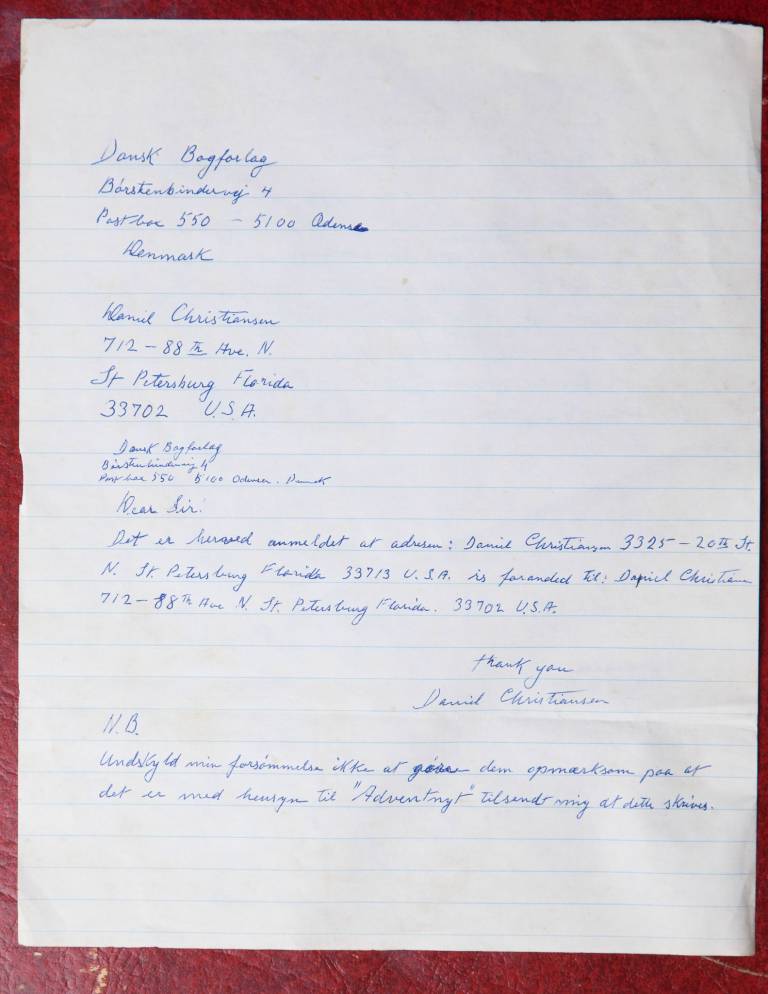 Dansk Bogforlag
Börstenbindervej 4
Postbox 550 - 5100 Odense
Denmark
Daniel Christiansen
712 - 88 Th Ave. N.
St Petersburg Florida
33702 U.S.A.
Dansk Bogforlag
Börstenbindervej 4
Postbox 550 5100 Odense. Denmark
Dear Sir!
Det er herved anmeldet at adresen: Daniel Christiansen 3325 - 20 Th St.
N. St. Petersburg Florida 33713 U.S.A. is foranded til: Daniel Christiansen
712 - 88 Th Ave N. St. Petersburg Florida. 33702 U.S.A.
Thank you
Daniel Christiansen
N.B.
Undskyld min forsömmelse ikke at göre dem opmærksom paa at
det er med hensyn til "Adventnyt" tilsendt mig at dette skrives.